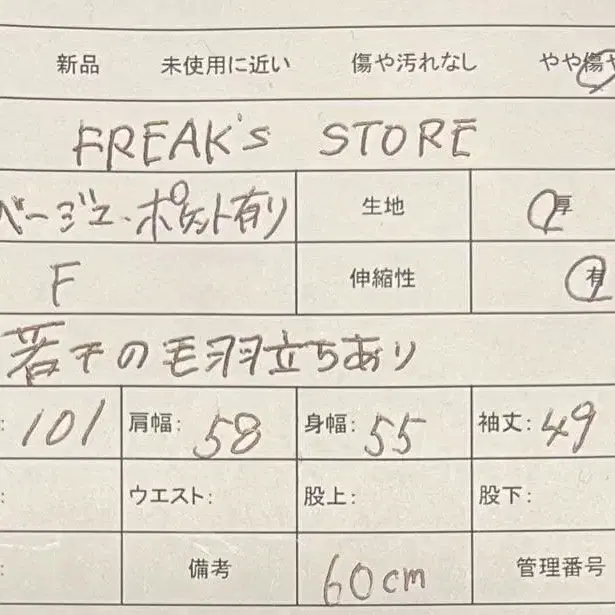 新品 未使用に近い 傷や汚れなし やや傷や
FREAK's STORE
ベージュ・ポケット有り 生地 厚
F 伸縮性 有
若干の毛羽立ちあり
: 101 肩幅: 58 身幅: 55 袖丈: 49
: ウエスト: 股上: 股下:
: 備考 60cm 管理番号